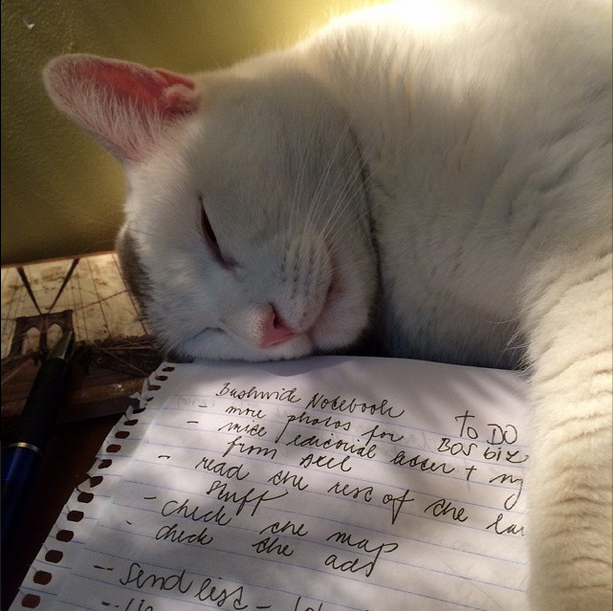 Bushwick Notebook
TO DO
- more photos for BOS biz
- nice editorial letter + my
from Axel
- read the rest of the law
stuff
- check the map
- check the ads
-- send list -